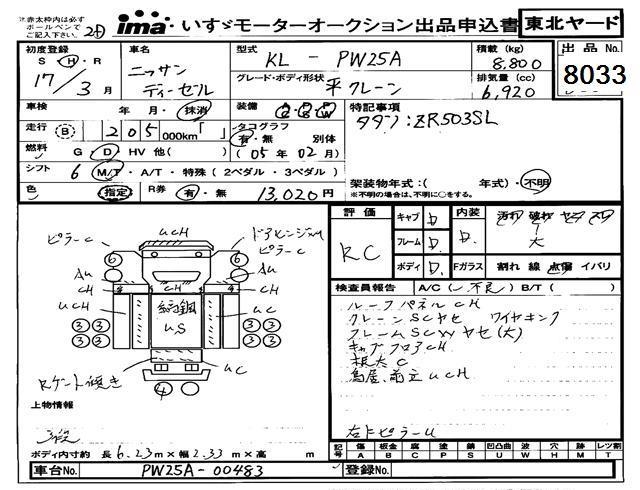 ※赤太枠内は必ず
ボールペンで
ご記入下さい。
ima いすゞモーターオークション出品申込書 東北ヤード
初度登録 車名 型式 積載 (kg) 出品No.
S・H・R ニッサン KL - PW25A 8,800 8033
17/3月 ディーセル グレード・ボディ形状 排気量 (cc)
平クレーン 6,920
車検 年 月・抹消 装備 A/C P/S P/W 特記事項
走行 B 205,000km「 」 タコグラフ 有・無 別体 タダノ:ZR503SL
燃料 G・D・HV 他( ) (05年02月)
シフト 6 M/T・A/T・特殊(2ペダル・3ペダル) 架装物年式:( 年式)・不明
色 指定 R券 有・無 13,020円 ※不明の場合は、不明に○をする。
評価 キャブ D 内装 汚れ 破れ ヤケ スレ
RC フレーム D D. 大
ボディ D. Fガラス 割れ 線 点傷 イバリ
検査員報告 A/C(レ 不良) B/T( )
ルーフパネルCH
クレーンSCヤセ ワイヤキンク
フレームSCWヤセ(大)
キャブフロアCH
根太C
鳥居、前立UCH
左ドピラーU
UCH
ピラーC
ドアヒンジ
ピラーC
6 6
AU AU
CH 4 CH 4 CH
UCH UC
縞鋼
US
3 3 3 3
3 3 3 3
Rゲート傾き UC
4
上物情報
3段
ボディ内寸約 長6.23m×幅2.33m×高 m
記号 傷 板金 腐 塗 錆 凹凸曲 波 穴 跡 レツ割
A B C P S U W H M T
車台No. PW25A-00483 登録No.